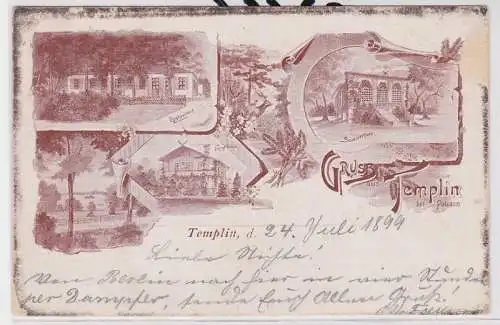 Restaurant
Gruss
aus
Templin
bei Potsdam
Templin, d. 24. Juli 1899
Liebe Nichte!
Von Berlin nach hier in vier Stunden
per Dampfer, sende Euch Allen Gruß.